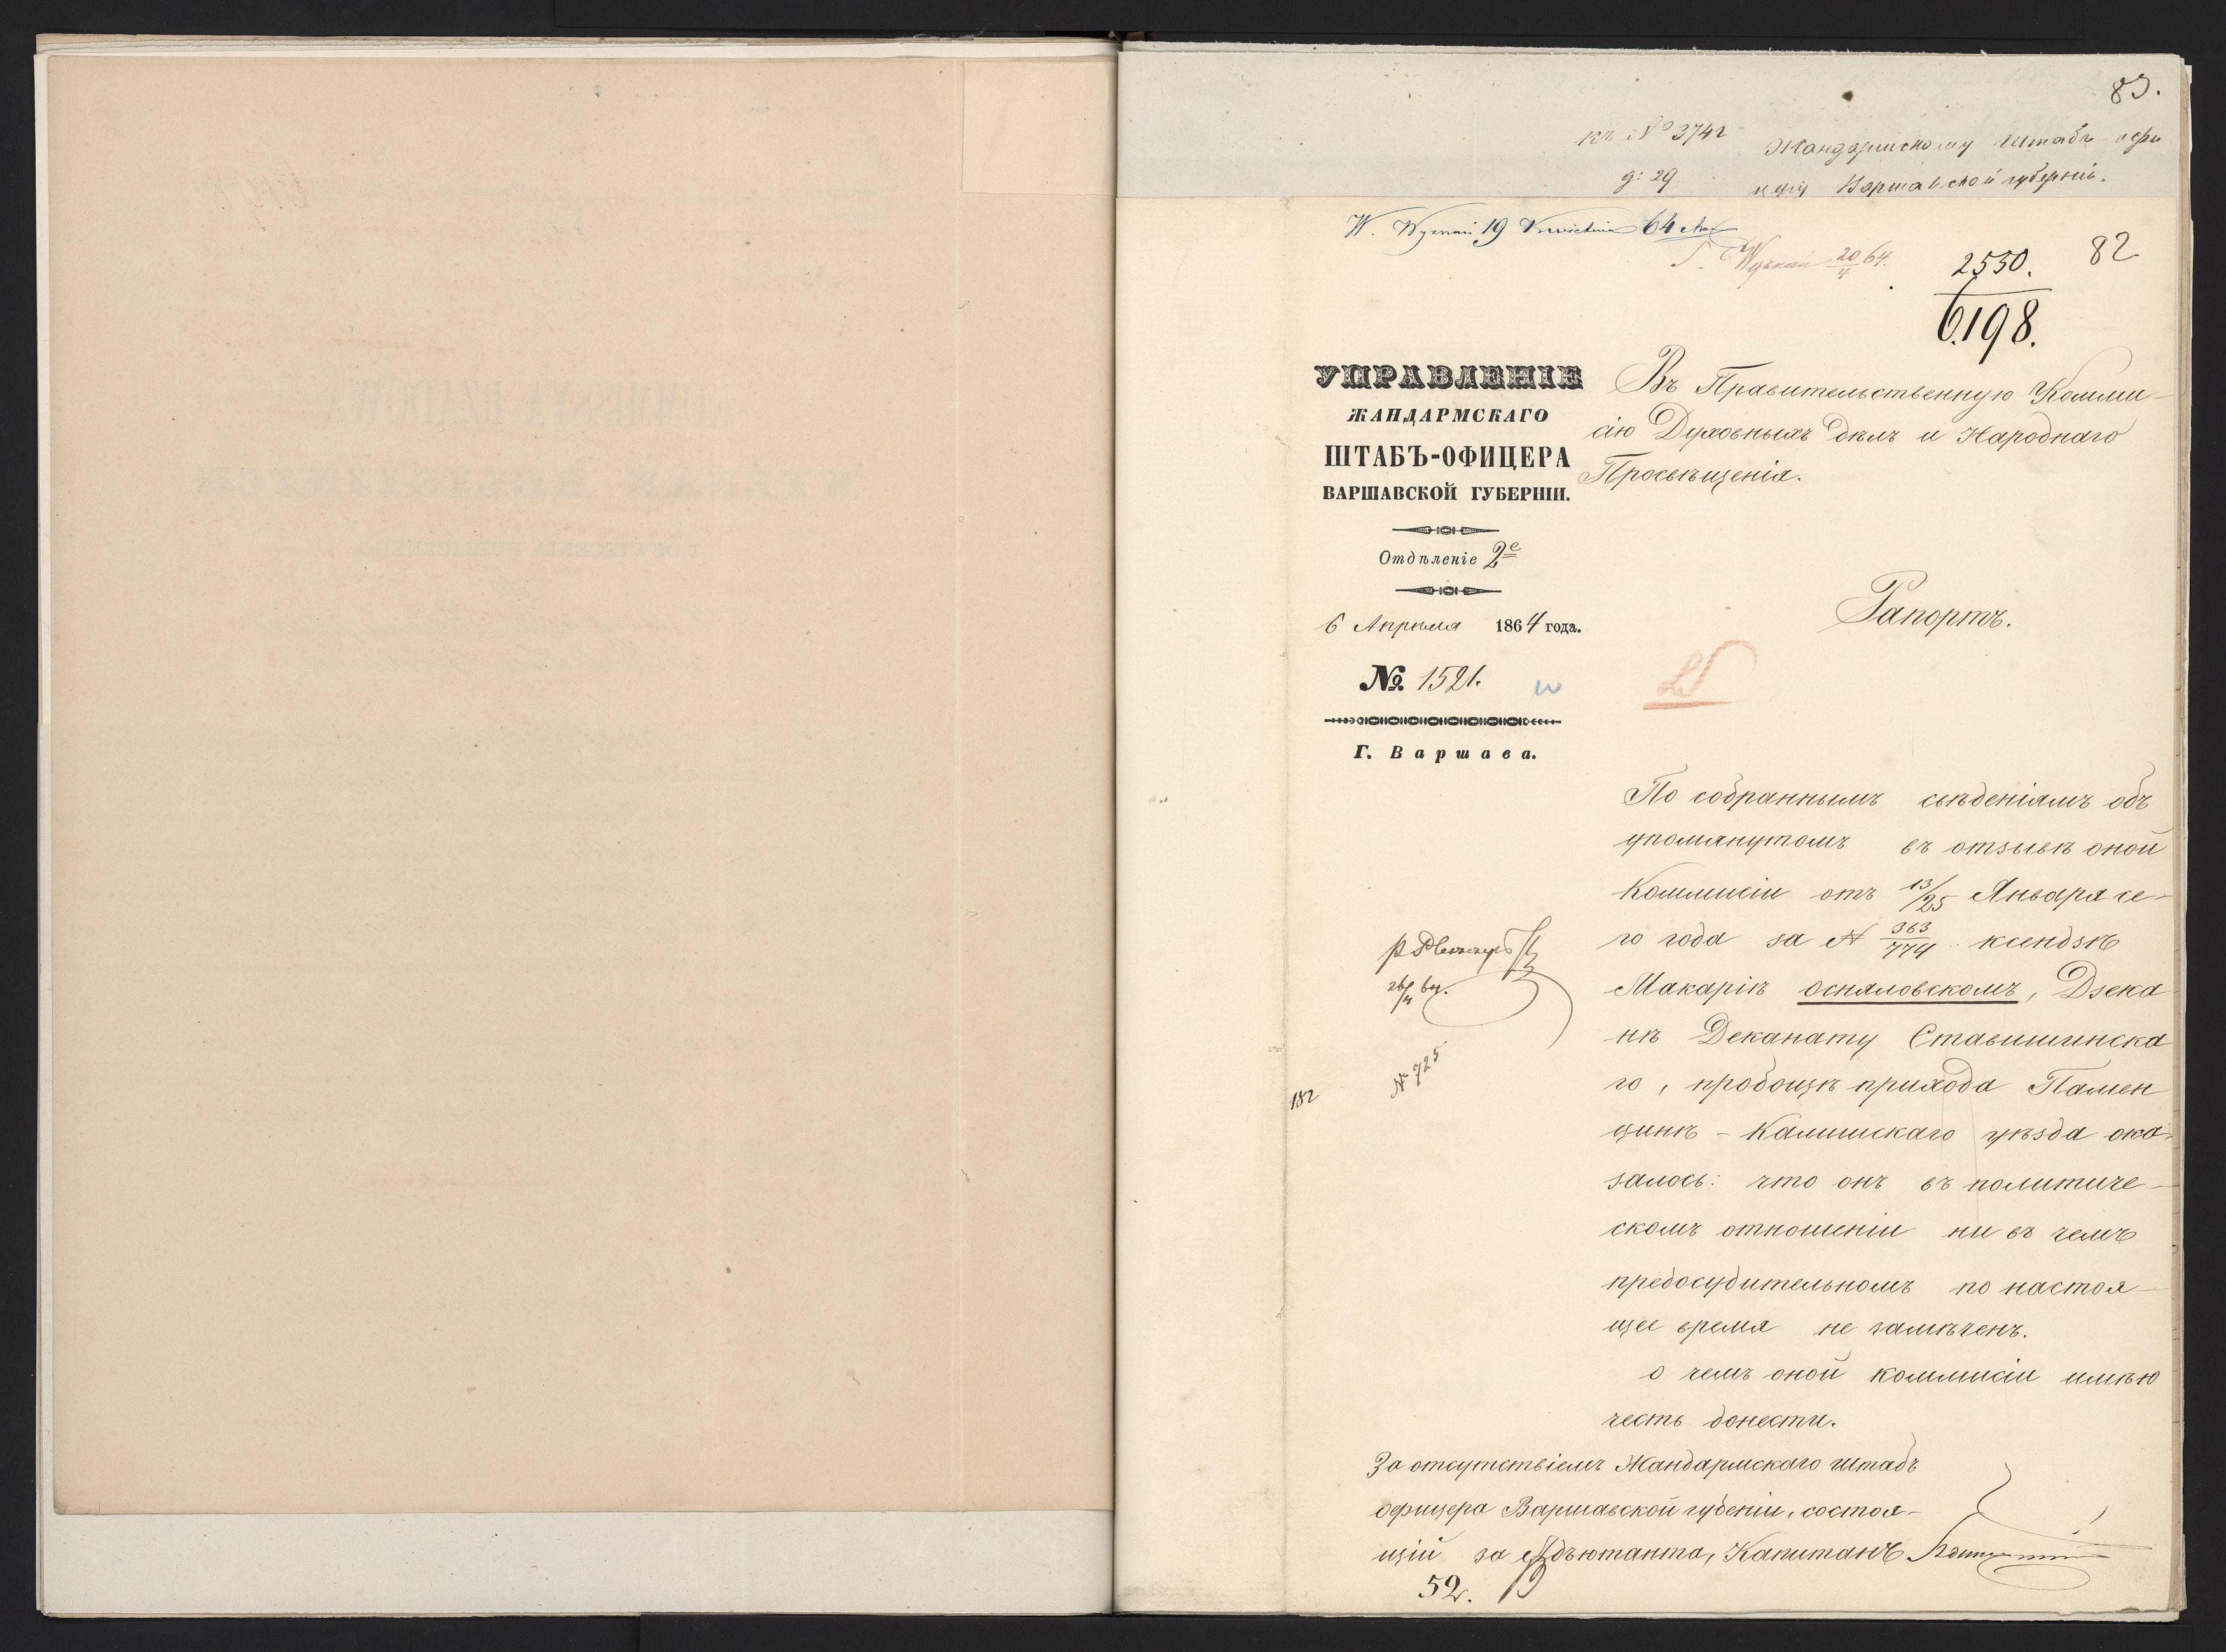 83.
къ № 3742
Жандармскому Штабъ офи
д: 29
церу Варшавской губерніи.
W. Wyznań 19 Kwietnia 64
Wyznań 20/4 64.
2550.
82
6198.
УПРАВЛЕНІЕ
ЖАНДАРМСКАГО
ШТАБЪ-ОФИЦЕРА
ВАРШАВСКОЙ ГУБЕРНІИ.
Отдѣленіе 2е
6 Апрѣля 1864 года.
№ 1521.
Г. Варшава.
Въ Правительственную Комми-
сію Духовныхъ дѣлъ и Народнаго
Просвѣщенія.
Рапортъ.
По собраннымъ свѣденіямъ объ
упомянутомъ въ отзывѣ оной
Коммисіи отъ 13/25 Января се-
го года за N 363/774 ксендзѣ
Макаріѣ Оспяловскомъ, Дзека
нѣ Деканату Ставишинска
го, пробощѣ прихода Памен
цинѣ - Калишскаго уѣзда ока-
залось: что онъ въ политиче-
скомъ отношеніи ни въ чемъ
предосудительномъ по настоя-
щее время не замѣченъ.
о чемъ оной коммисіи имѣю
честь донести.
№ 725
182
За отсутствіемъ Жандармскаго штабъ
офицера Варшавской губеніи, состоя-
щій за Адъютанта, Капитанъ
52.